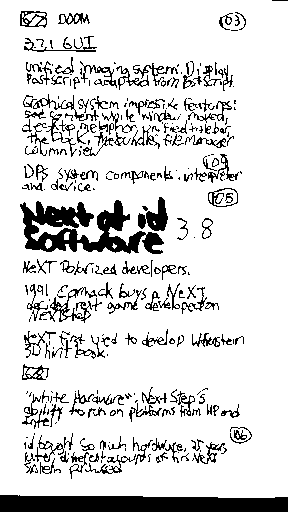 6/7 DOOM 103
3.7.1 GUI
Unified imaging system. Display
Postscript, adapted from Postscript.
Graphical system impressive features:
see content while window moved,
desktop metaphor, unified titlebar,
the Dock, file bundles, file manager
column view
104
DPS system components: interpreter
and device.
105
NeXT at id
Software 3.8
NeXT Polarized developers.
1991 Carmack buys a NeXT,
decided next game development on
NEXTSTEP
NeXT first used to develop Wolfenstein
3D hint book.
6/8
"White Hardware": NextStep's
ability to run on platforms from HP and
Intel.
106
id bought so much hardware, 25 years
later, different accounts of first NeXT
system purchased